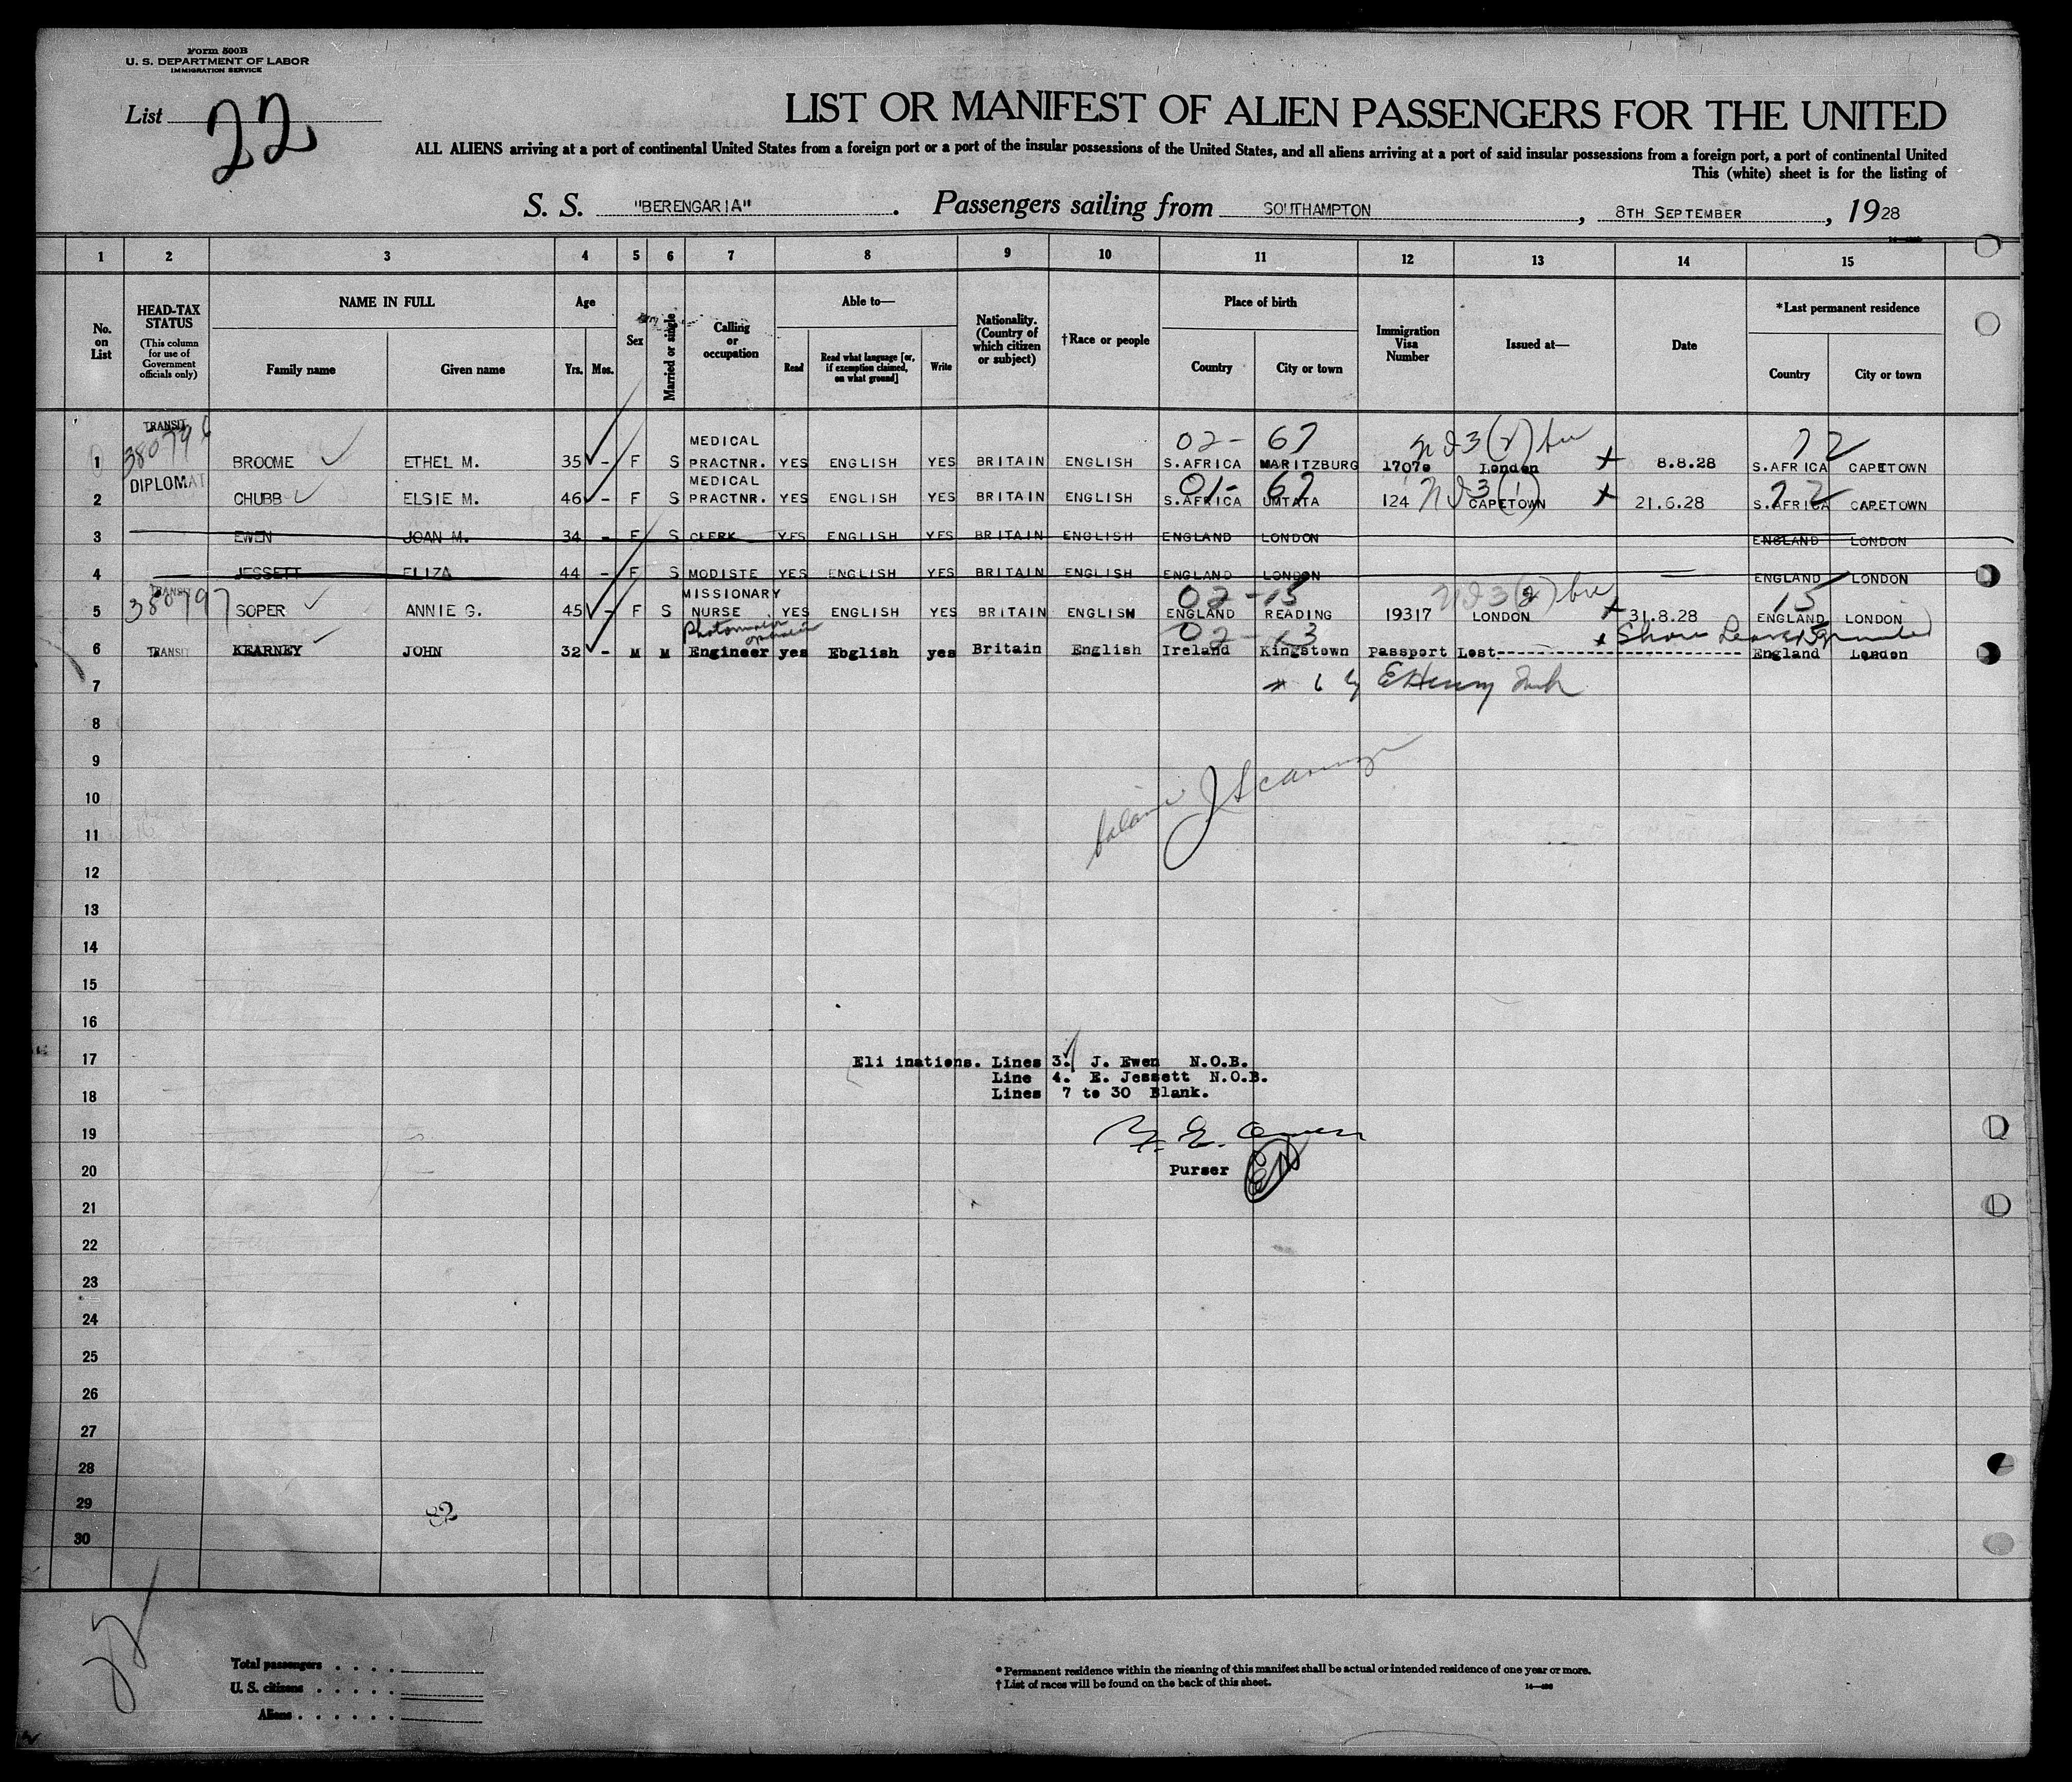 Form 500B
U. S. DEPARTMENT OF LABOR
IMMIGRATION SERVICE
List 22
LIST OR MANIFEST OF ALIEN PASSENGERS FOR THE UNITED
ALL ALIENS arriving at a port of continental United States from a foreign port or a port of the insular possessions of the United States, and all aliens arriving at a port of said insular possessions from a foreign port, a port of continental United
This (white) sheet is for the listing of
S. S. "BERENGARIA". Passengers sailing from SOUTHAMPTON, 8TH SEPTEMBER, 1928
1 2 3 4 5 6 7 8 9 10 11 12 13 14 15
No. on List
HEAD-TAX STATUS
(This column for use of Government officials only)
NAME IN FULL
Family name Given name
Age
Yrs. Mos.
Sex
Married or single
Calling or occupation
Able to—
Read Read what language [or, if exemption claimed, on what ground] Write
Nationality. (Country of which citizen or subject)
†Race or people
Place of birth
Country City or town
Immigration Visa Number
Issued at—
Date
*Last permanent residence
Country City or town
TRANSIT
MEDICAL 02- 67 72
1 BROOME ETHEL M. 35 - F S PRACTNR. YES ENGLISH YES BRITAIN ENGLISH S.AFRICA MARITZBURG 1707 London 8.8.28 S.AFRICA CAPETOWN
DIPLOMAT MEDICAL 01- 67 72
2 CHUBB ELSIE M. 46 - F S PRACTNR. YES ENGLISH YES BRITAIN ENGLISH S.AFRICA UMTATA 124 CAPETOWN 21.6.28 S.AFRICA CAPETOWN
3 EWEN JOAN M. 34 - F S CLERK YES ENGLISH YES BRITAIN ENGLISH ENGLAND LONDON ENGLAND LONDON
4 JESSETT ELIZA 44 - F S MODISTE YES ENGLISH YES BRITAIN ENGLISH ENGLAND LONDON ENGLAND LONDON
TRANSIT 380797 MISSIONARY 02-15 15
5 SOPER ANNIE G. 45 - F S NURSE YES ENGLISH YES BRITAIN ENGLISH ENGLAND READING 19317 LONDON 31.8.28 ENGLAND LONDON
6 TRANSIT KEARNEY JOHN 32 - M M Engineer yes Ebglish yes Britain English Ireland Kingstown Passport Lost England London
7
8
9
10
11
12
13
14
15
16
17 Eli inations. Lines 3. J. Ewen N.O.B.
Line 4. E. Jessett N.O.B.
18 Lines 7 to 30 Blank.
19
20 Purser
21
22
23
24
25
26
27
28
29
30
Total passengers
U. S. citizens
Aliens
* Permanent residence within the meaning of this manifest shall be actual or intended residence of one year or more.
† List of races will be found on the back of this sheet.